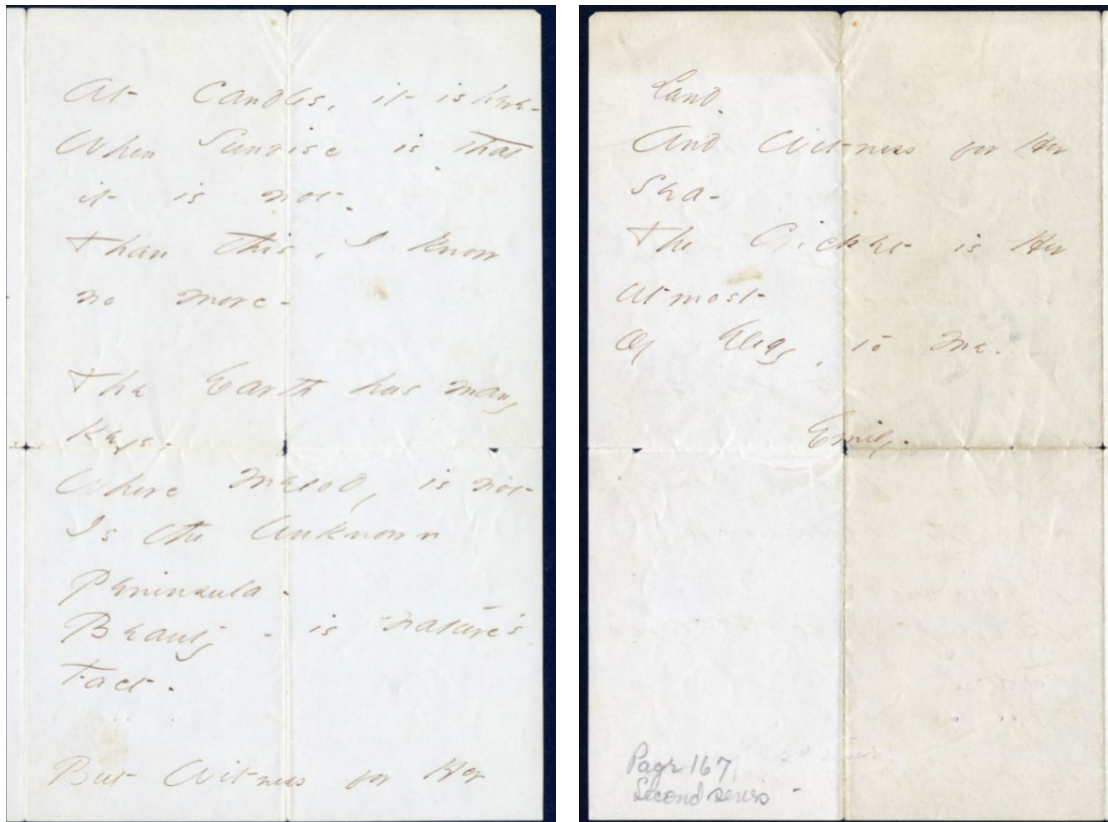 At Candles, it is here-
When Sunrise is - that
it is not -
Than this, I know
no more -
The Earth has many
Keys -
Where Melody is not
Is the Unknown
Peninsula -
Beauty - is nature's
Fact -
But Witness for Her
Land -
And Witness for Her
Sea -
The Cricket is Her
Utmost
Of Elegy, to me -
Emily -
Page 167
Second series -